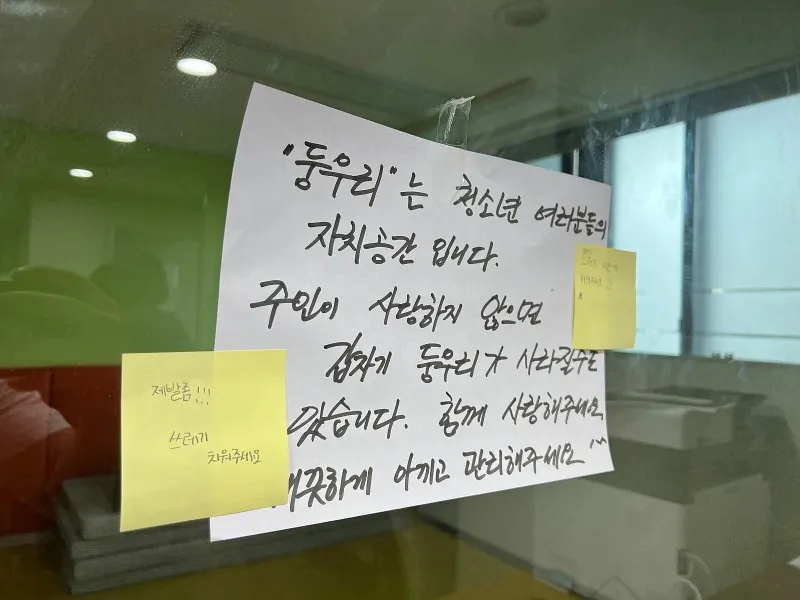 "둥우리"는 청소년 여러분들의
자치공간 입니다.
주인이 사랑하지 않으면
갑자기 둥우리가 사라질수도
있습니다. 함께 사랑해주세요,
깨끗하게 아끼고 관리해주세요 ^^
제발좀!!!
쓰레기
치워주세요